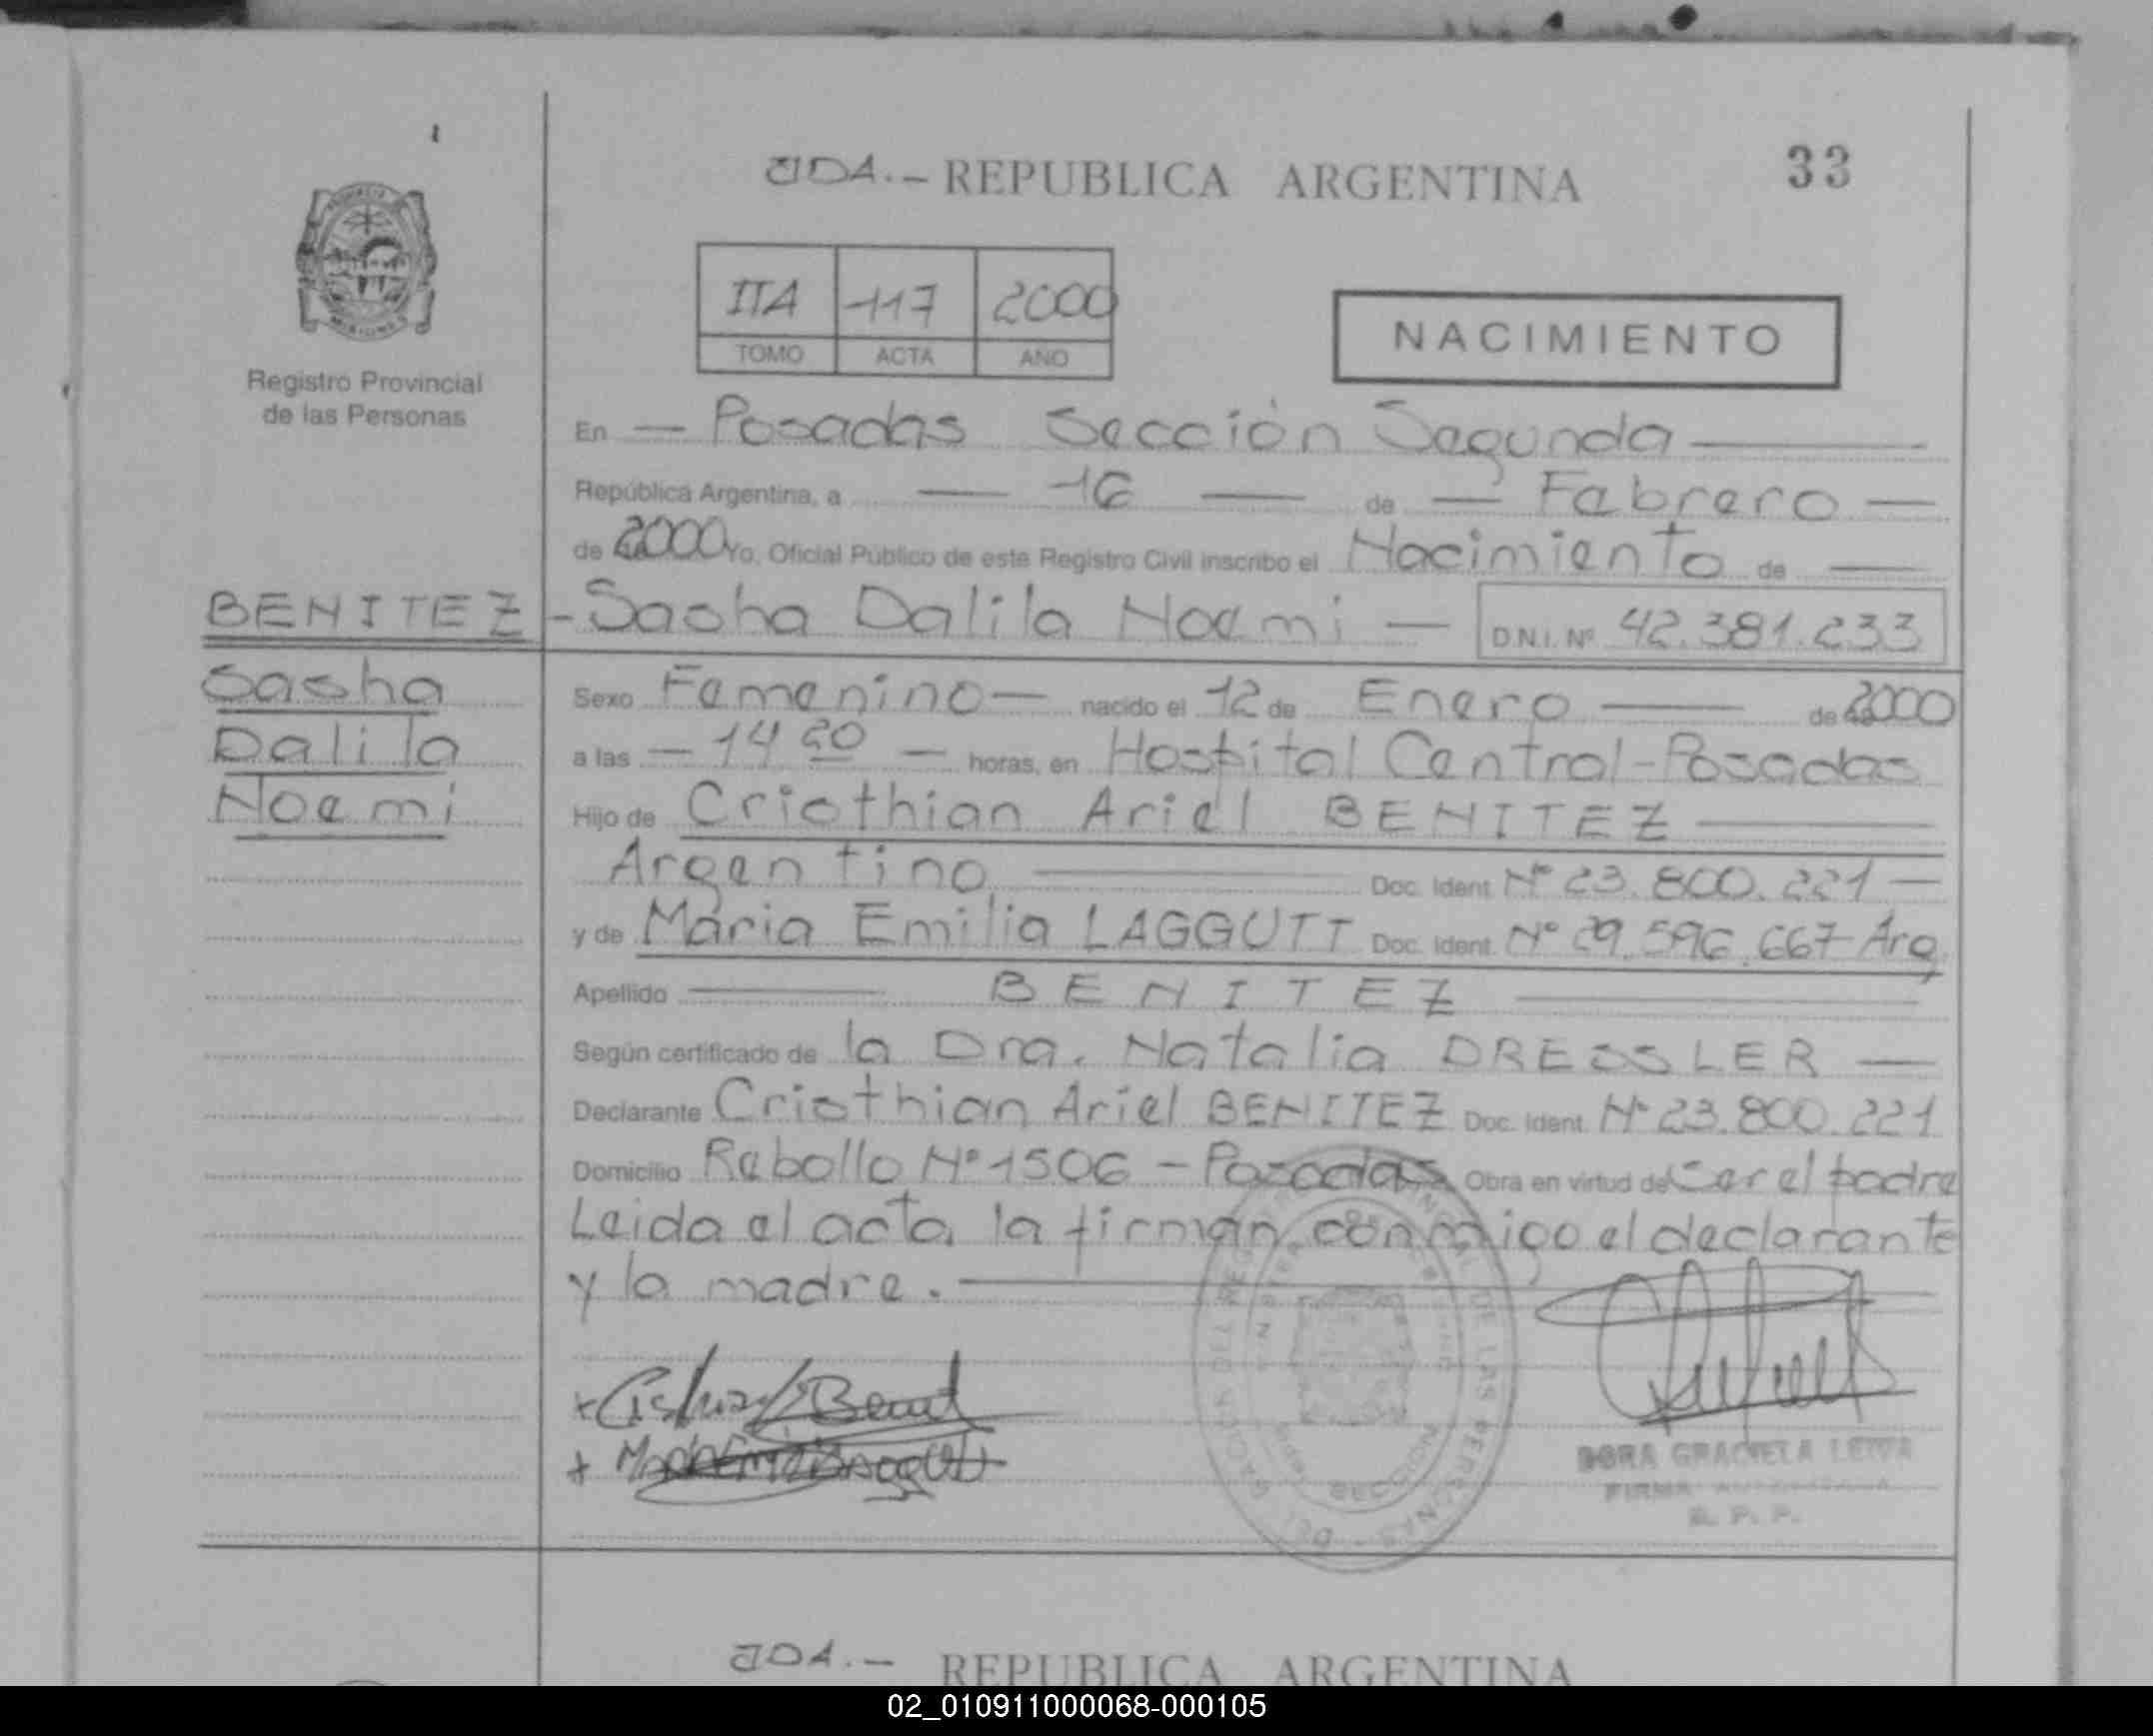 33
JDA.- REPUBLICA ARGENTINA
IIA 117 2000
TOMO ACTA AÑO
NACIMIENTO
Registro Provincial
de las Personas
En — Posadas Sección Segunda —
República Argentina, a — 16 — de — Febrero —
de 2000 Yo, Oficial Público de este Registro Civil inscribo el Nacimiento de —
BENITEZ - Sasha Dalila Noemi — D.N.I. Nº 42.381.233
Sasha
Dalila
Noemi
Sexo Femenino — nacido el 12 de Enero — de 2000
a las — 14 20 — horas, en Hospital Central - Posadas
Hijo de Cristhian Ariel BENITEZ —
Argentino — Doc. Ident. Nº 23.800.221 —
y de María Emilia LAGGUTT Doc. Ident. Nº 29.596.667 Arg
Apellido — BENITEZ —
Según certificado de la Dra. Natalia DRESSLER —
Declarante Cristhian Ariel BENITEZ Doc. Ident. Nº 23.800.221
Domicilio Rebollo Nº 1506 - Posadas Obra en virtud de Ser el padre
Leida el acta la firman conmigo el declarante
y la madre. —
DORA GRACIELA LEIVA
FIRMA AUTORIZADA
R. P. P.
JDA.- REPUBLICA ARGENTINA
02_010911000068-000105